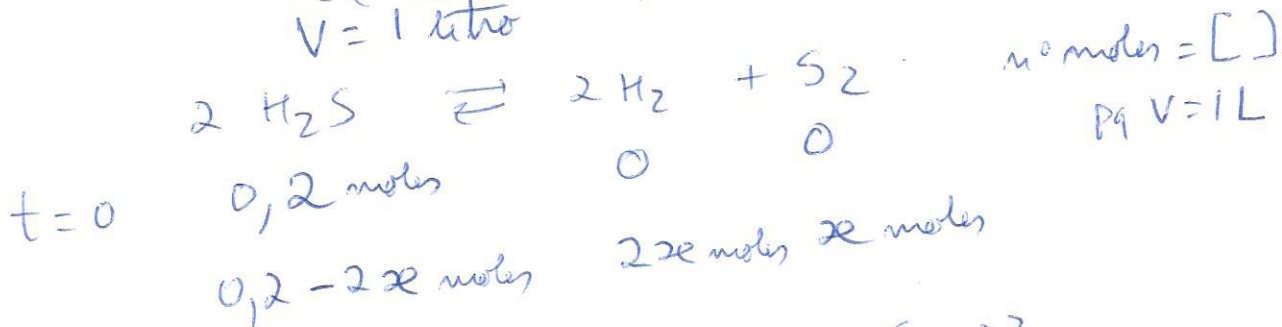 V = 1 litro
2 H₂S ⇌ 2 H₂ + S₂
nº moles = [ ]
pq V = 1 L
t = 0 0,2 moles 0 0
0,2 - 2x moles 2x moles x moles